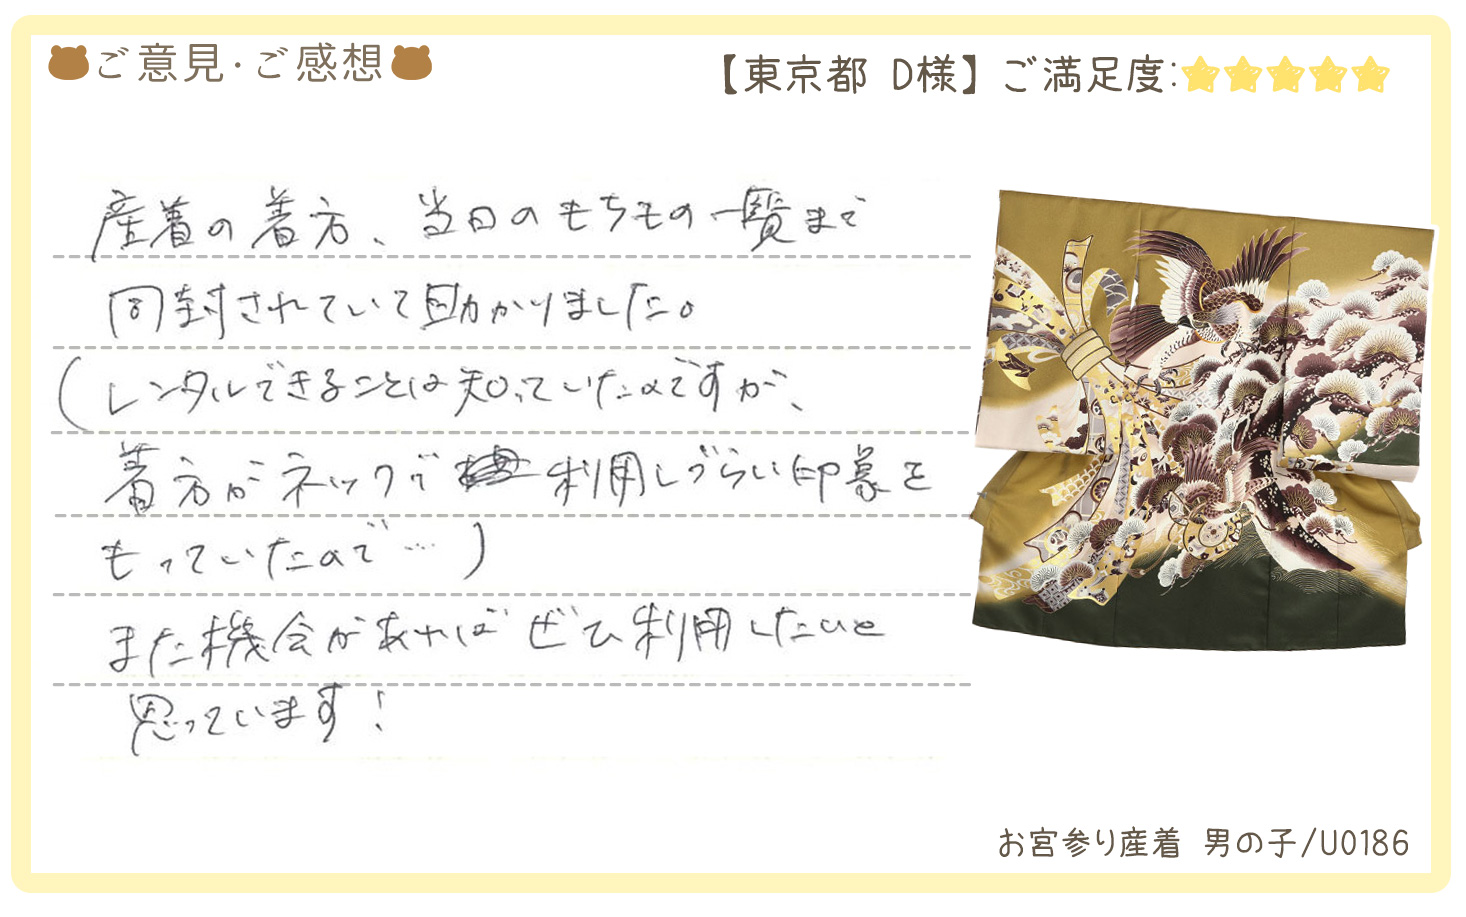 ご意見・ご感想
【東京都 D様】ご満足度:
産着の着方、当日のもちもの一覧まで
同封されていて助かりました。
(レンタルできることは知っていたのですが、
着方がネックで 利用しづらい印象を
もっていたので…)
また機会があればぜひ利用したいと
思っています!
お宮参り産着 男の子/U0186